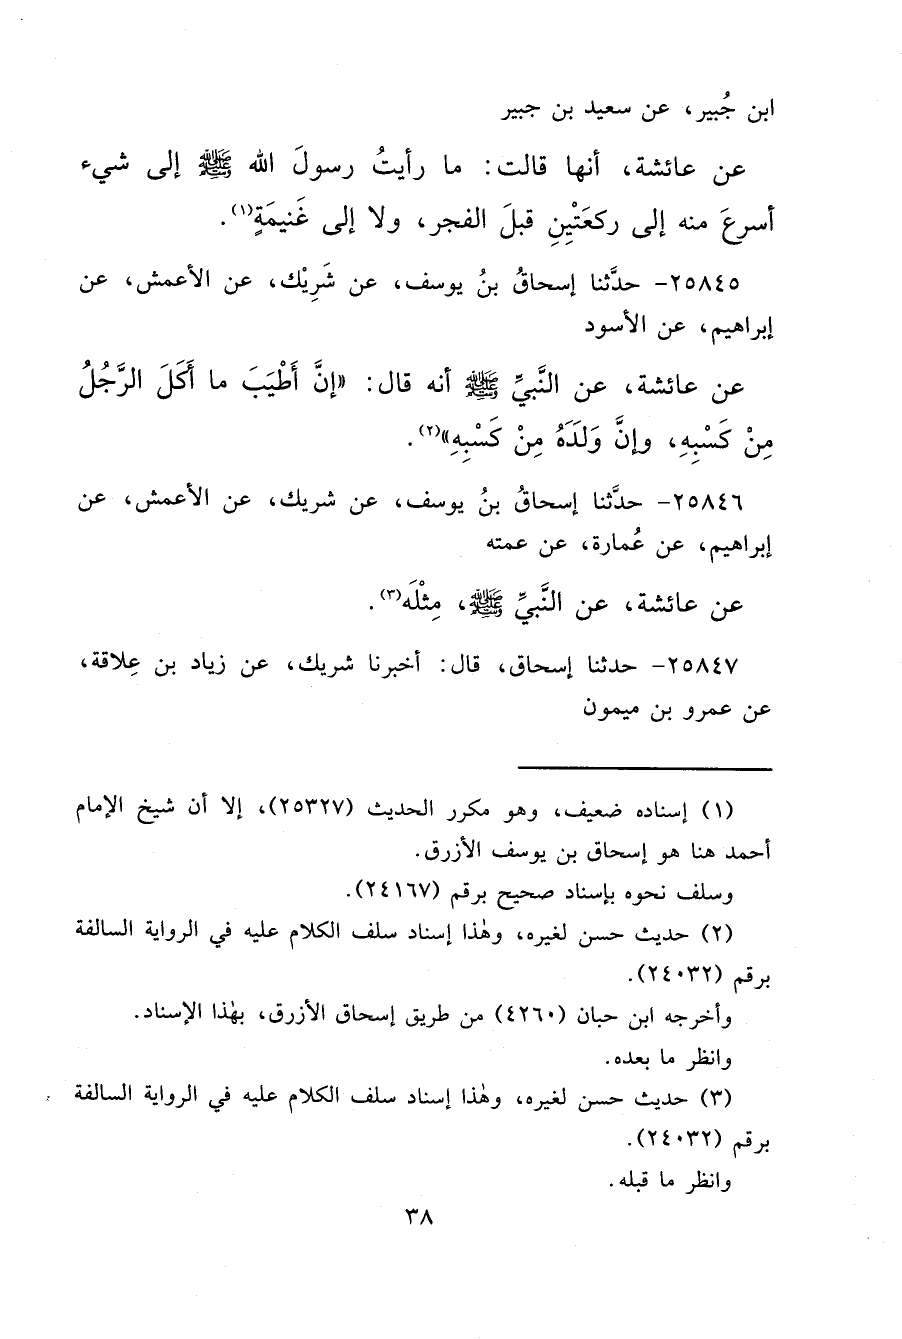 ابن جُبير، عن سعيد بن جبير
عن عائشة، أنها قالت: ما رأيتُ رسولَ الله ﷺ إلى شيء
أسرعَ منه إلى ركعَتْينِ قبلَ الفجر، ولا إلى غَنيمَةٍ(١).
٢٥٨٤٥- حدَّثنا إسحاقُ بنُ يوسف، عن شَرِيْك، عن الأعمش، عن
إبراهيم، عن الأسود
عن عائشة، عن النَّبيِّ ﷺ أنه قال: «إنَّ أَطْيَبَ ما أَكَلَ الرَّجُلُ
مِنْ كَسْبِهِ، وإنَّ وَلَدَهُ مِنْ كَسْبِهِ»(٢).
٢٥٨٤٦- حدَّثنا إسحاقُ بنُ يوسف، عن شريك، عن الأعمش، عن
إبراهيم، عن عُمارة، عن عمته
عن عائشة، عن النَّبيِّ ﷺ، مِثْلَه(٣).
٢٥٨٤٧- حدثنا إسحاق، قال: أخبرنا شريك، عن زياد بن عِلاقة،
عن عمرو بن ميمون
(١) إسناده ضعيف، وهو مكرر الحديث (٢٥٣٢٧)، إلا أن شيخ الإمام
أحمد هنا هو إسحاق بن يوسف الأزرق.
وسلف نحوه بإسناد صحيح برقم (٢٤١٦٧).
(٢) حديث حسن لغيره، وهٰذا إسناد سلف الكلام عليه في الرواية السالفة
برقم (٢٤٠٣٢).
وأخرجه ابن حبان (٤٢٦٠) من طريق إسحاق الأزرق، بهٰذا الإسناد.
وانظر ما بعده.
(٣) حديث حسن لغيره، وهٰذا إسناد سلف الكلام عليه في الرواية السالفة
برقم (٢٤٠٣٢).
وانظر ما قبله.
٣٨